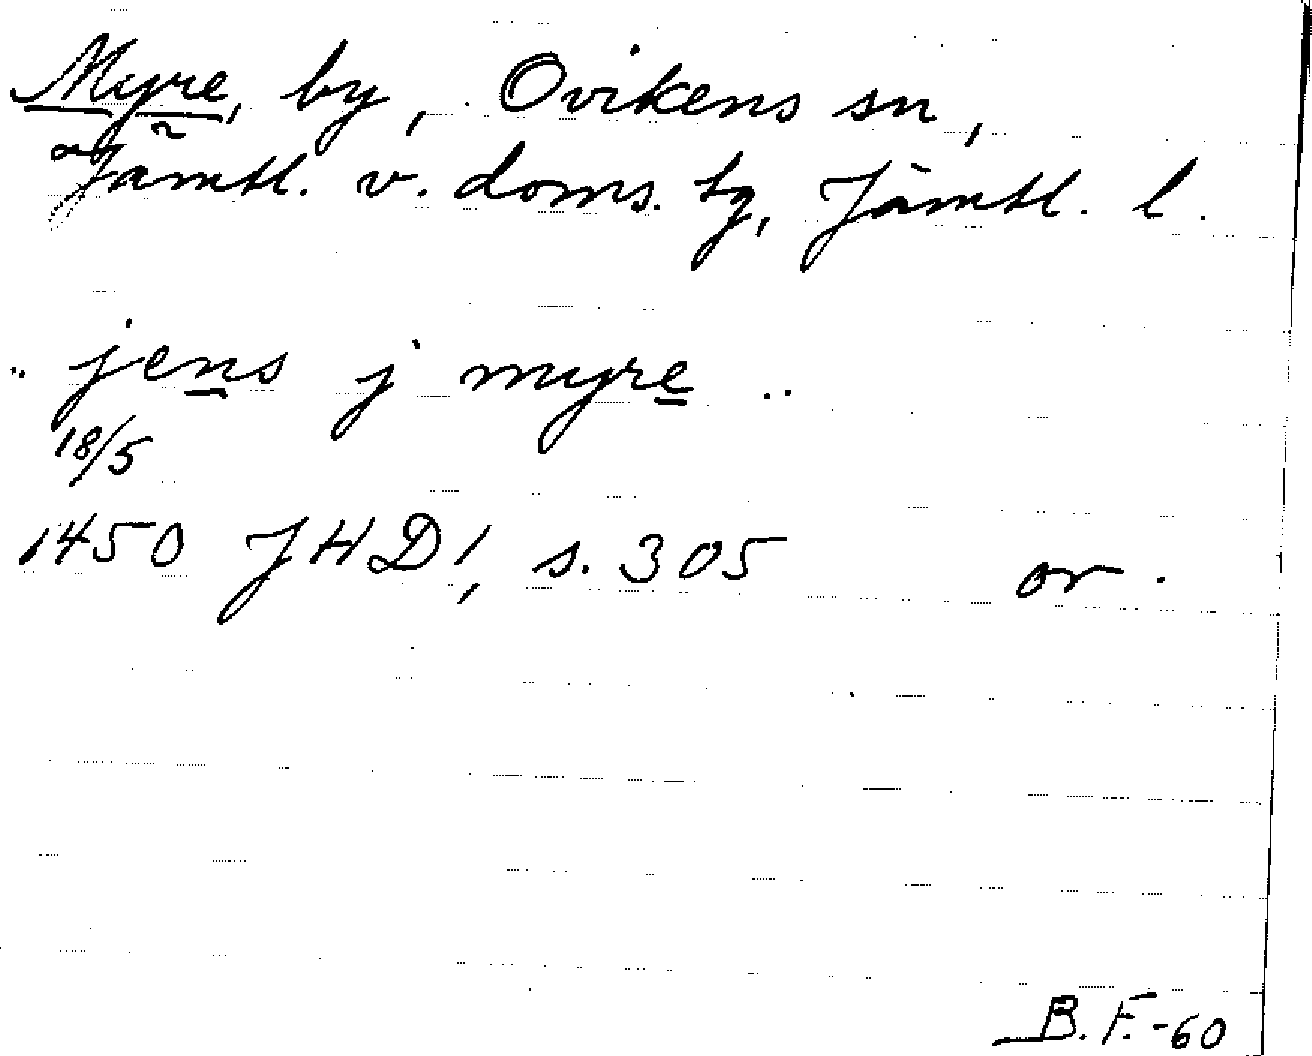 Myre, by, Ovikens sn,
Jämtl. v. doms. tg, Jämtl. l.
.. jens j myre ..
18/5
1450 JHD 1, s. 305 or.
B.F. -60